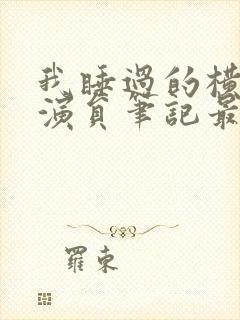 我睡過的橫
演員筆記最
羅東